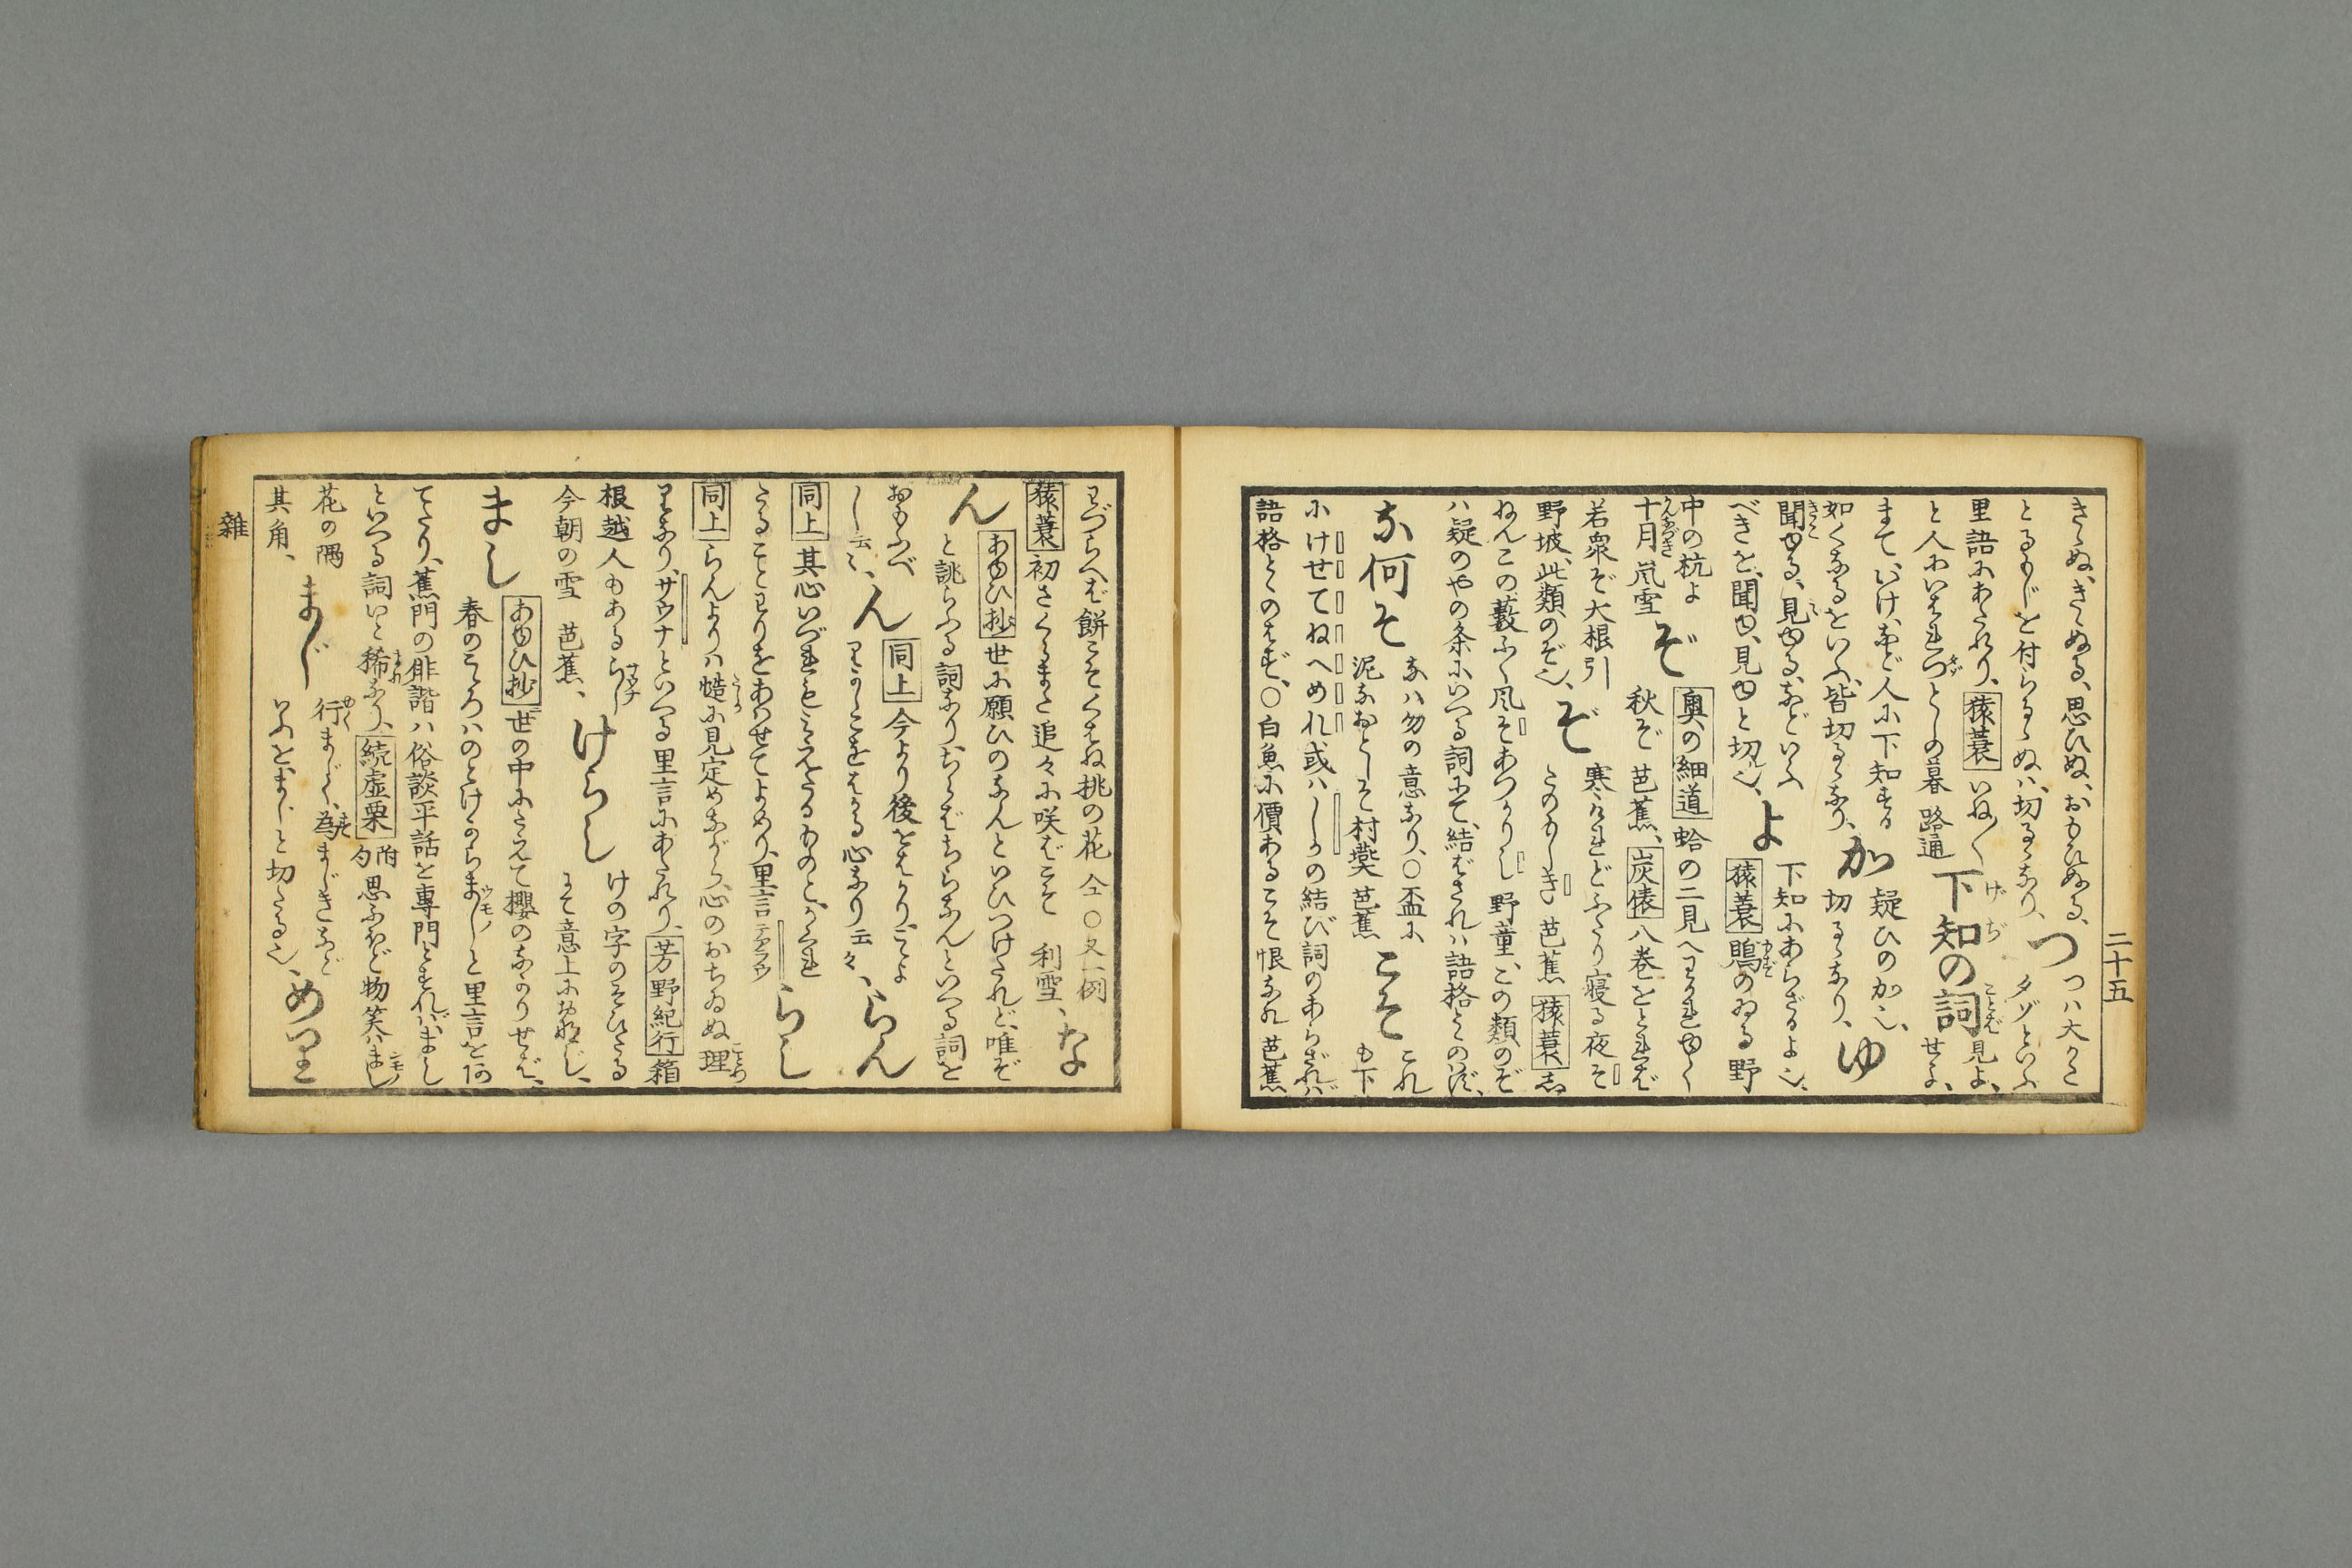 二十五
きゝぬ、きゝぬる、思ひぬ、おもひぬる、
つ
つハ大かた
とるもじを付らるゝぬハ、切るゝなり、
タゾといふ
里語にあたれり、猿蓑 いね〳〵
と人にいはれつとしの暮 路通
下知の詞
見よ、
せよ、
まて、いけ、など人に下知する
如くなるをいふ、皆切るゝなり、
か
疑ひのか也、
切るゝなり、
ゆ
聞ゆる、見ゆる、などいふ
べきを、聞ゆ、見ゆと切也、
よ
下知にあらざるよ也、
猿蓑 鴨のゐる野
中の杭よ
十月 嵐雪
ぞ
奥の細道 蛤の二見へわかれゆく
秋ぞ 芭蕉、炭俵 八巻をとれば
若衆ぞ大根引
野坡、此類のぞ也、
ぞ
寒けれどふたり寝る夜そ
たのもしき 芭蕉 猿蓑 志
ねんこの藪ふく風そあつかりし 野童、この類のぞ
ハ疑のやの条にいへる詞にて、結ばされハ語格とゝのはず、
な何そ
なハ勿の意なり、○盃に
泥なおとしそ村燕 芭蕉
こそ
これ
も下
にけせてねへめれ或ハしかの結び詞のあらざれバ
語格とゝのはず、○白魚に價あるこそ恨なれ 芭蕉
わづらへば餅こそくはね桃の花 仝 ○又一例
猿蓑 初さくらまた追々に咲ばこそ 利雪、
な
ん
あゆひ抄 世に願ひのなんといひつけたれど、唯ぞ
と誂らふる詞なりちらばちらなんといへる詞を
おもふべ
し云々、
ん
同上 今より後をはかり、こゝよ
りかしこをはかる心なり云々、
らん
同上 其心いづれもこえたるものと、かくれ
たることわりをあハせてよめり、里言 デアラウ
らし
同上 らんよりハ慥に見定めながら、心のおちゐぬ理
りなり、サウナといへる里言にあたれり、芳野紀行 箱
根越人もあるらし
今朝の雪 芭蕉、
けらし
けの字のそひたる
にて意上におなじ、
まし
あゆひ抄 世の中にたえて櫻のなかりせば、
春のこゝろハのどけからましと里言を何
てたり、蕉門の俳諧ハ俗談平話を専門とすれバ、まし
といへる詞いと稀なり、続虚栗 附句 思ふほど物笑ハまし
花の隅
其角、
まじ
行まじく、為まじきなど
いふを、まじと切たる也、
めり
雜